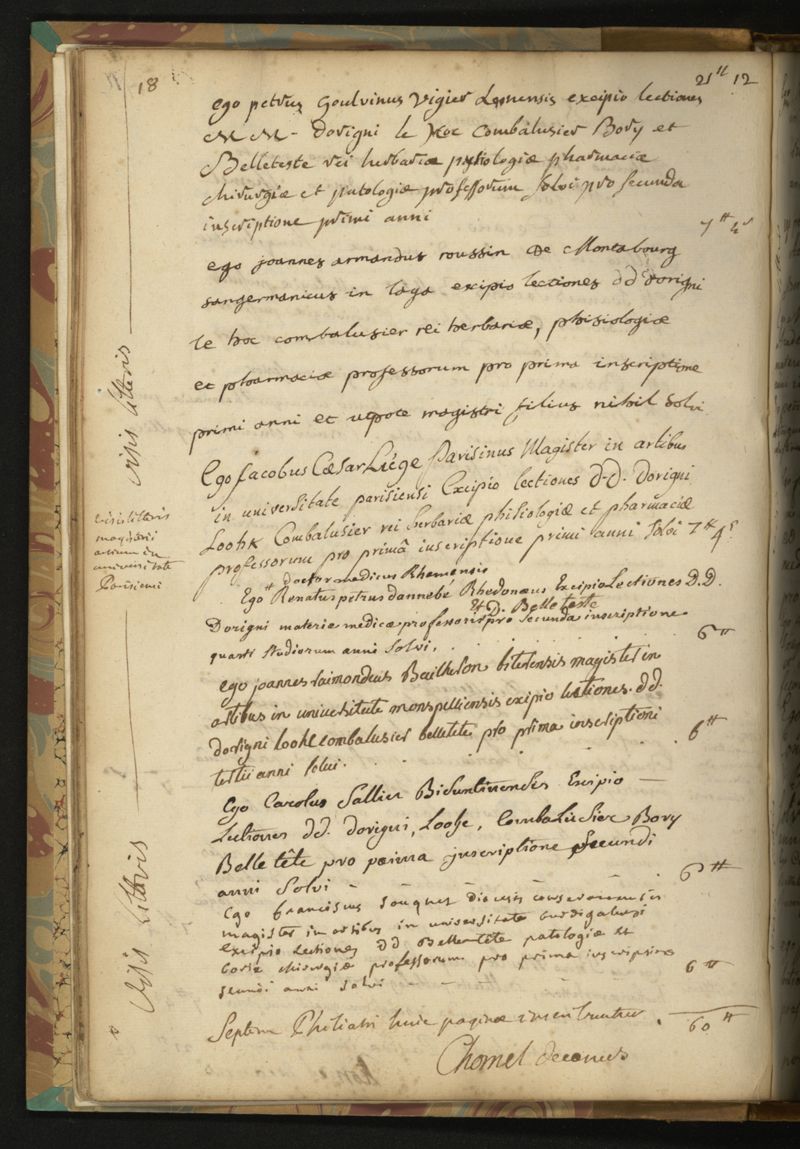 18
21 tt 12
ego petrus Goulvinus Vigier Leonensis excipio lectiones
MM - dorigni le hoc Combalusier Bory et
Belleteste rei herbariæ physiologiæ pharmaciæ
chirurgiæ et patologiæ professorum solvi pro secunda
inscriptione primi anni
7 tt 4 s
ego joannes armandus roussin de Montabourg
sangermanicus in laya excipio lectiones dd dorigni
le hoc combalusier rei herbariæ, phisiologiæ
et pharmaciæ professorum pro prima inscriptione
primi anni et utpote magistri filius nihil solvi
visis litteris
Ego Jacobus Cæsar Liége Parisinus Magister in artibus
in universitate parisiensi Excipio lectiones D.D. Dorigni
Loohk Combalusier rei herbariæ phisiologiæ et pharmaciæ
professorum pro primâ inscriptione primi anni solvi 7 tt 4 s
visis litteris
magisterii
artium in
universitate
Parisiensi
doctor medicus Rhemensis
Ego Renatus petrus dannebé Rhedonæus Excipio Lectiones D.D.
et D. Belleteste
Dorigni materiæ medicæ professoris pro secunda inscriptione
quarti studiorum anni solvi.
6 tt
ego joannes raimondeus Bailheron biterensis magister in
artibus in universitate monspelliensis excipio lectiones. dd.
dorigni loohc combalusier belletete pro prima inscriptioni
tertii anni solvi.
6 tt
Ego Carolus Sallier Bisuntinensis Excipio
Lectiones dd. dorigni, Loohc, Combalusier Bory
Belletête pro prima inscriptione secundi
anni solvi
6 tt
visis litteris
Ego franciscus souquet diocesis
magister in artibus in universitate burdigalensi
excipio lectiones DD Belletête patologiæ et
borie chirurgiæ professorum pro prima inscriptione
secundi anni solvi
6 tt
Septem Philiatri huic paginæ inscribuntur.
60 tt
Chomel decanus